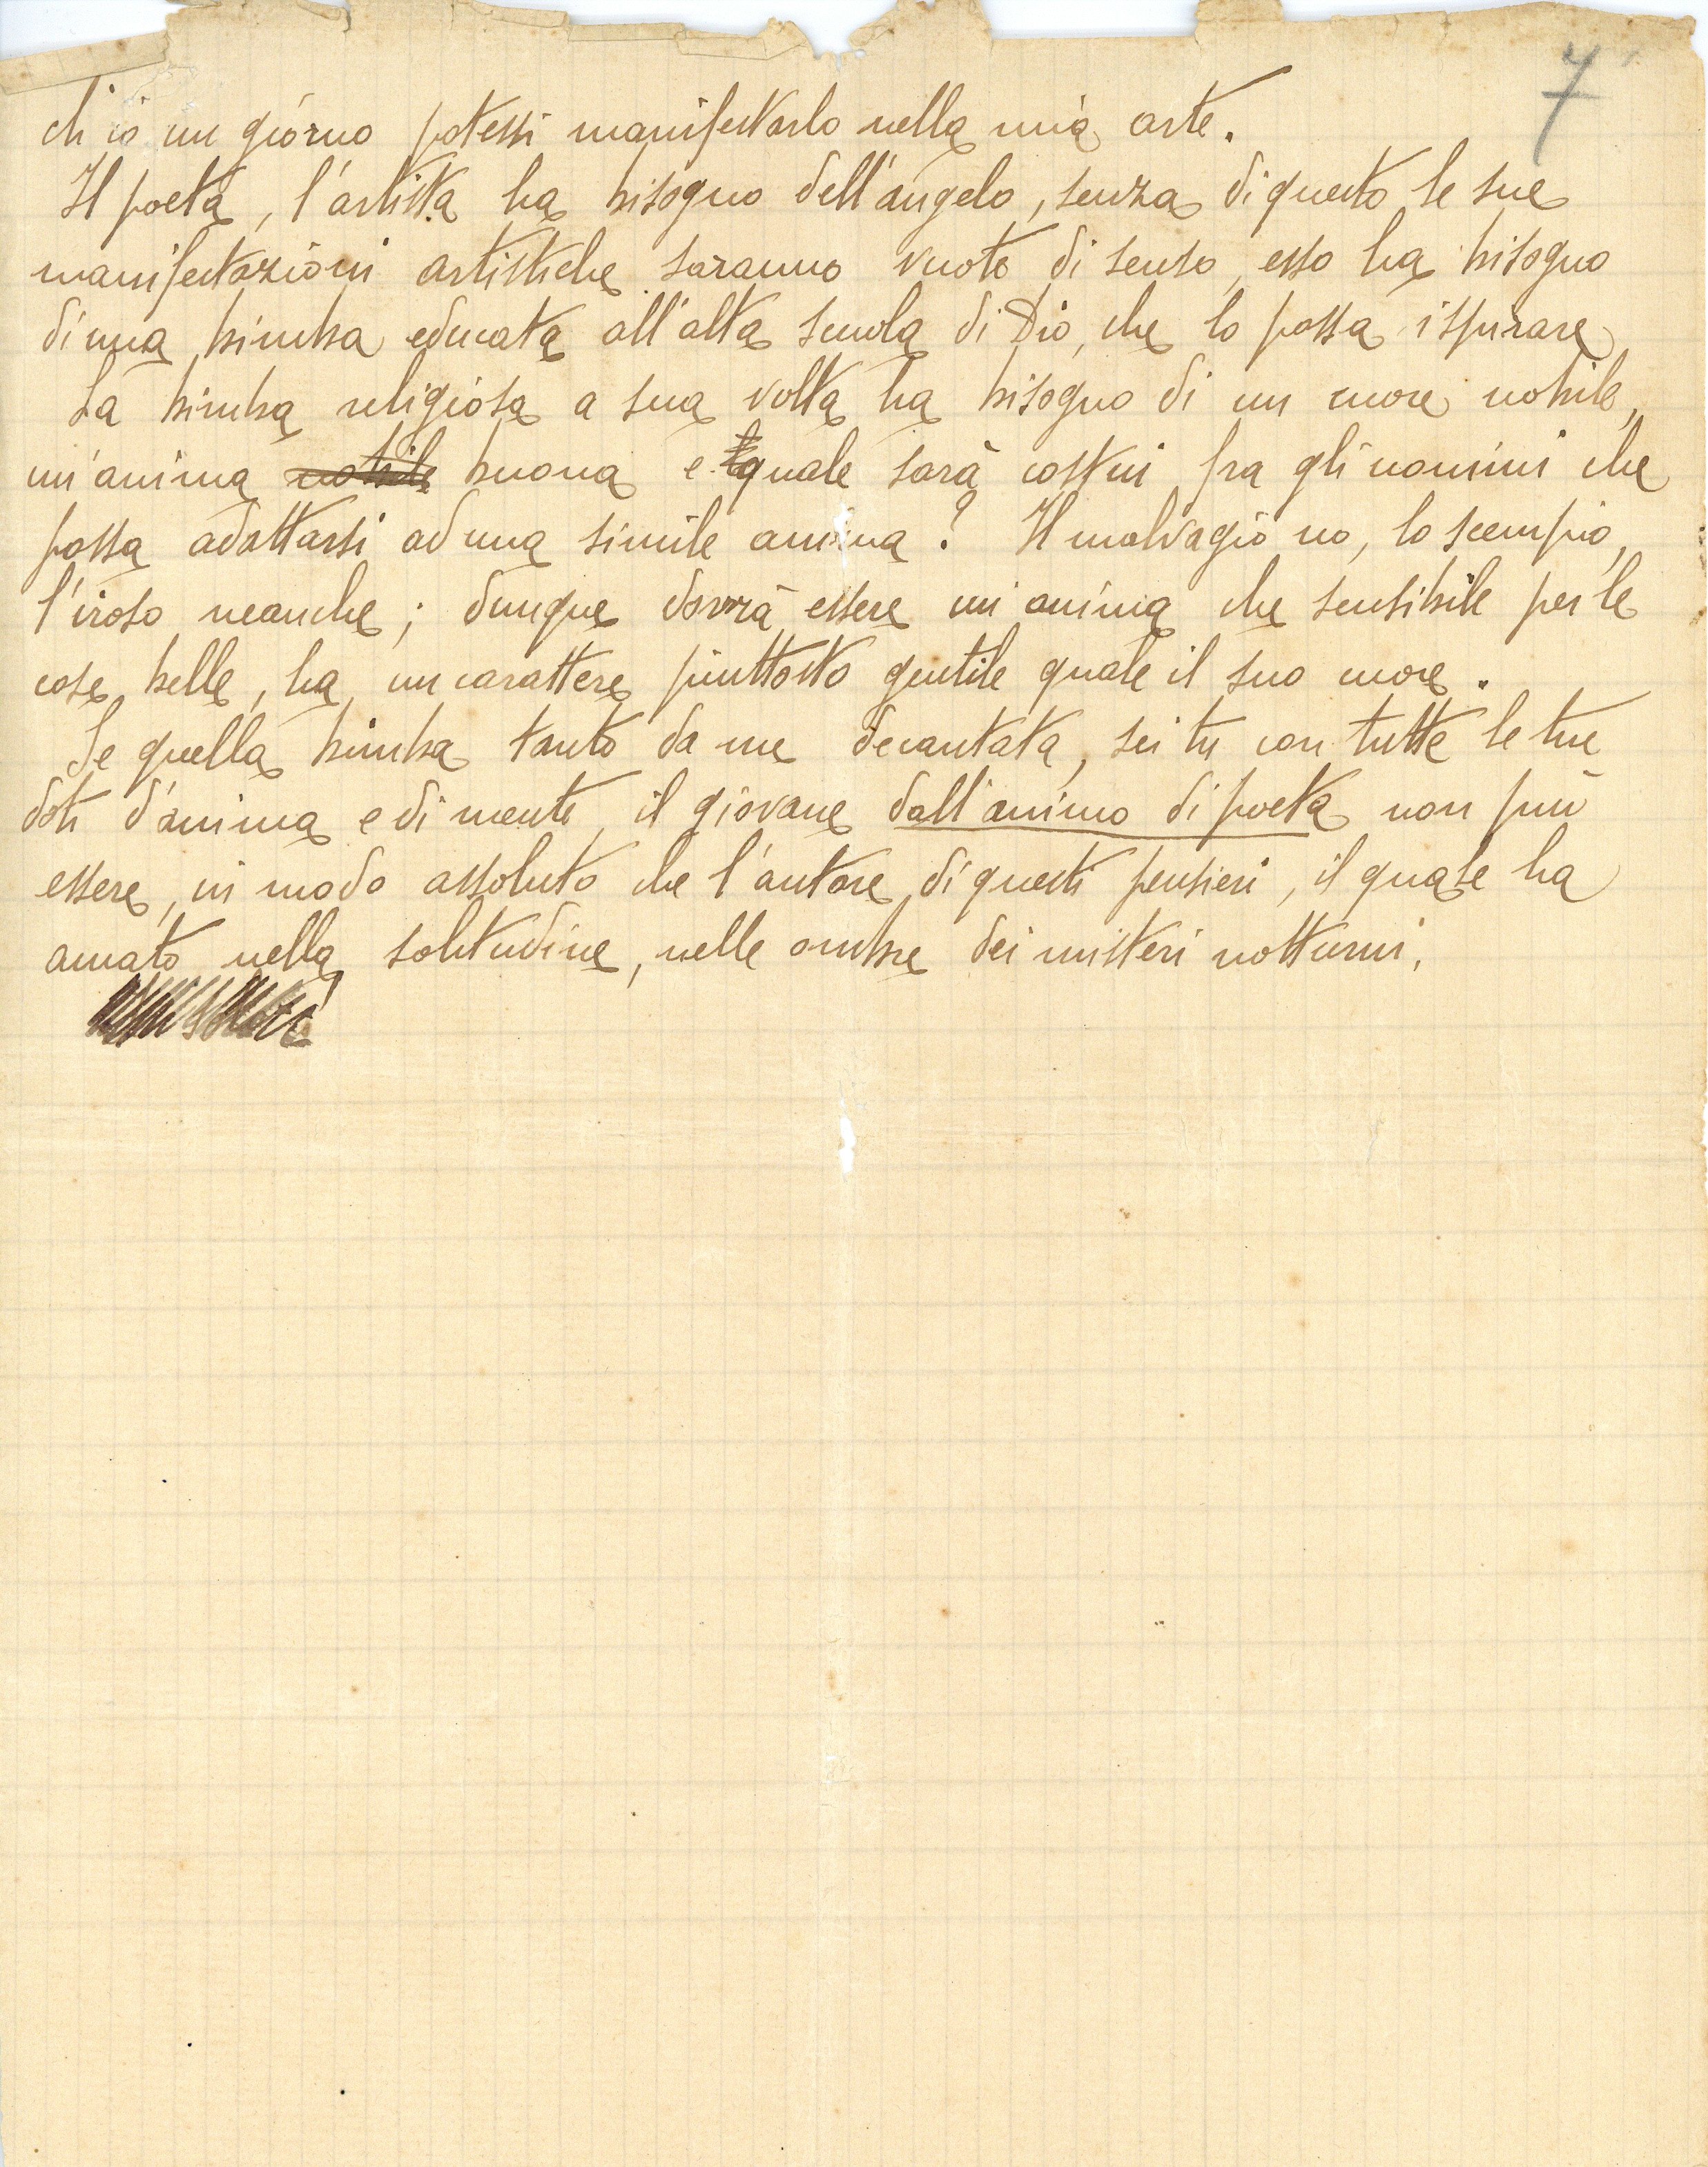 7
ch'io un giorno potessi manifestarlo nella mia arte.
Il poeta, l'artista ha bisogno dell'angelo, senza di questo le sue
manifestazioni artistiche saranno vuote di senso, esso ha bisogno
di una bimba educata all'alta scuola di Dio, che lo possa ispirare
La bimba religiosa a sua volta ha bisogno di un cuore nobile,
un'anima nobile buona e quale sarà costui fra gli uomini che
possa adattarsi ad una simile anima? Il malvagio no, lo scempio,
l'iroso neanche; dunque dovrà essere un'anima che sensibile per le
cose belle, ha un carattere piuttosto gentile quale il suo cuore.
Se quella bimba tanto da me decantata, sei tu con tutte le tue
doti d'anima e di mente, il giovane dall'animo di poeta non può
essere, in modo assoluto che l'autore di questi pensieri, il quale ha
amato nella solitudine, nelle ombre dei misteri notturni,